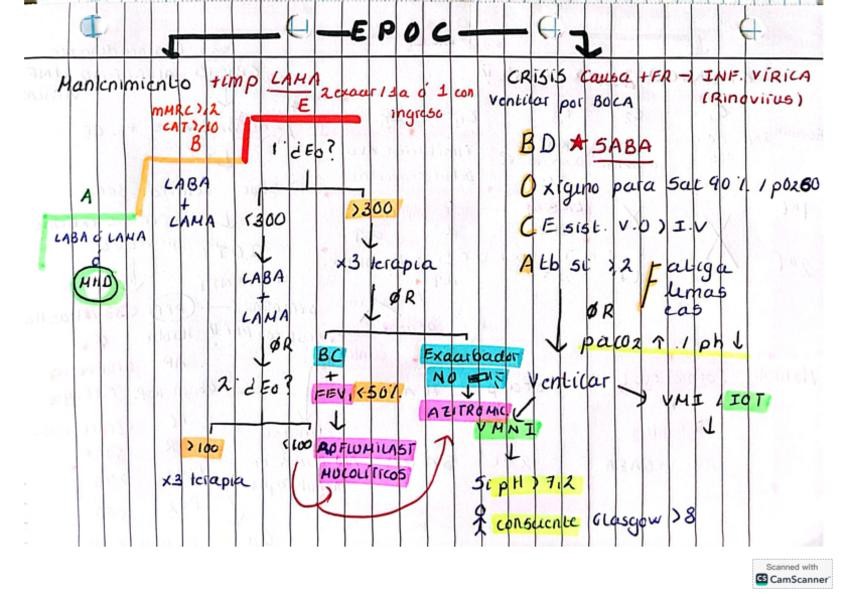 EPOC
Mantenimiento
+ imp LAMA
2 exaar/1a ó 1 con ingreso
mMRC ≥,2
CAT ≥,10
B
E
A
LABA ó LAMA
ó
LABA
+
LAMA
1º ¿Eo?
<300
LABA
+
LAMA
ØR
2º ¿Eo?
>100
x3 terapia
<100
>300
x3 terapia
ØR
BC
+
FEV1 <50%
ROFLUMILAST
MUCOLÍTICOS
Exaarbador
NO
AZITROMIC.
CRISIS Causa +FR → INF. VÍRICA
(Rinovirus)
Ventilar por BOCA
BD ★ SABA
Oxigino para Sat 90% / pO2 60
CE sist. V.O > I.V
Atb si ≥,2
Fatiga
lemas
eas
ØR
paCO2 ↑ / ph ↓
Ventilar
VMI / IOT
VMNI
Si pH > 7,2
consciente Glasgow > 8
Scanned with
CS CamScanner